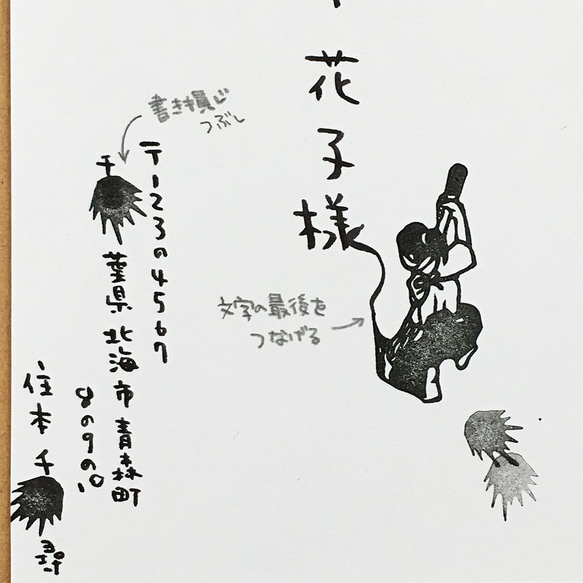 花子様
書き損じ
つぶし
〒123の4567
千
葉県北海市青森町
8の9の10
文字の最後を
つなげる
住本千
尋